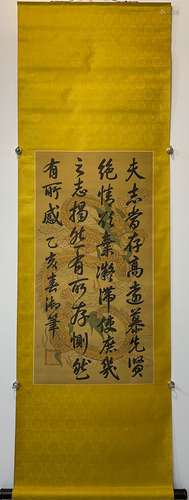 夫志当存高远慕先贤
绝情欲棄凝滞使庶几
之志揭然有所存惻然
有所感 乙亥春御筆